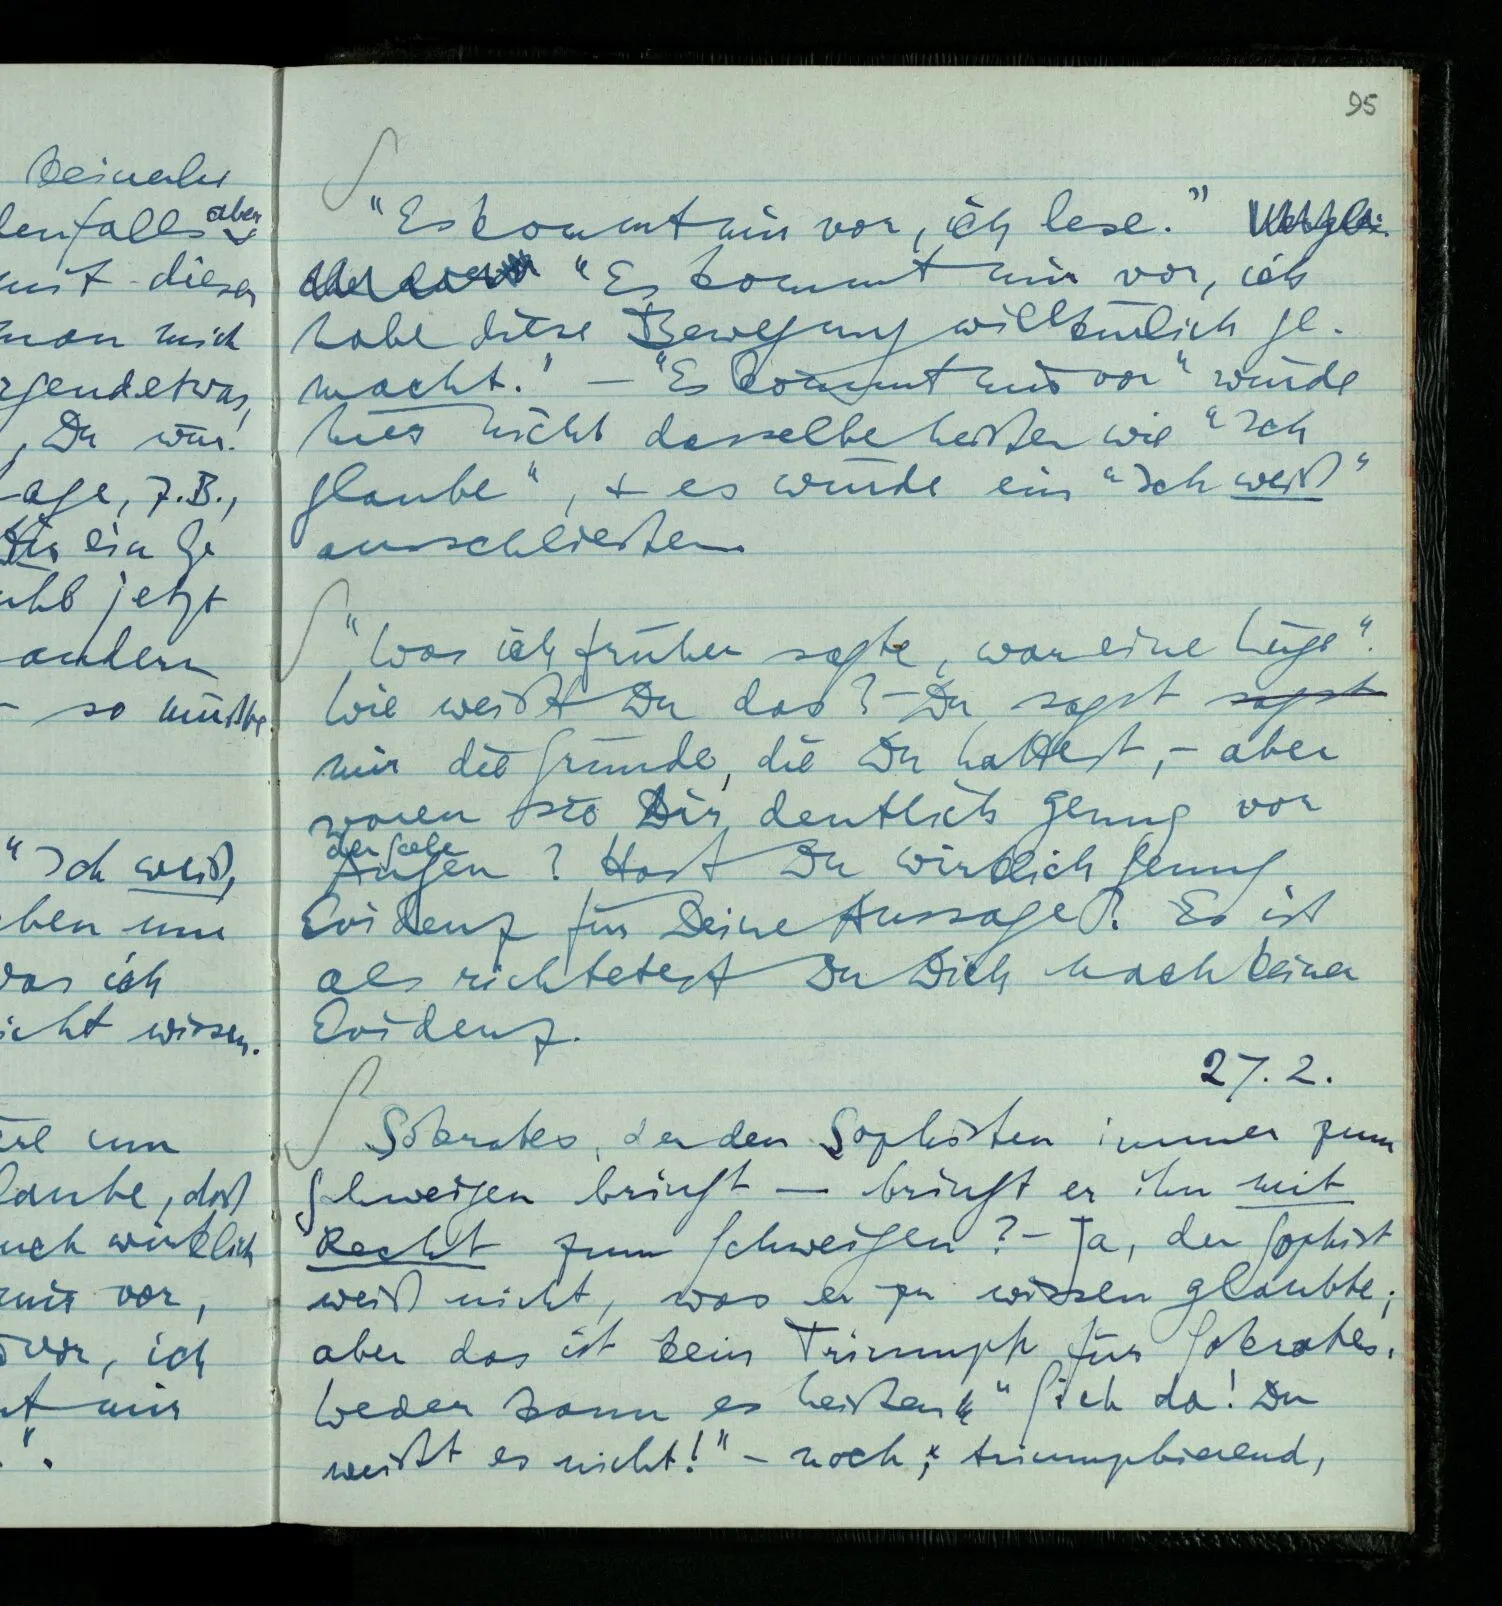 beinahe
denfalls aber
mit dieser
man mich
rgendetwas,
, Du wür-
age, z.B.,
ein Ge
jetzt
andern
– so müßte
"Ich weiß,
ben um
was ich
icht wissen.
um
laube, daß
uch wirklich
mir vor,
vor, ich
mir
".
95
"Es kommt mir vor, ich lese."
"Es kommt mir vor, ich
habe diese Bewegung willkürlich ge-
macht." – "Es kommt mir vor" würde
hier nicht dasselbe heißen wie "Ich
glaube", + es würde ein "Ich weiß"
ausschließen.
"Was ich früher sagte, war eine Lüge".
Wie weißt Du das? – Du sagst sagst
mir die Gründe, die Du hattest, – aber
waren sie Dir deutlich genug vor
der Seele
Augen? Hast Du wirklich genug
Evidenz für Deine Aussage? Es ist
als richtetest Du Dich nach keiner
Evidenz.
27.2.
Sokrates, der den Sophisten immer zum
Schweigen bringt — bringt er ihn mit
Recht zum Schweigen? – Ja, der Sophist
weiß nicht, was er zu wissen glaubte;
aber das ist kein Triumph für Sokrates.
Weder kann es heißen "Sieh da! Du
weißt es nicht!" – noch, triumphierend,